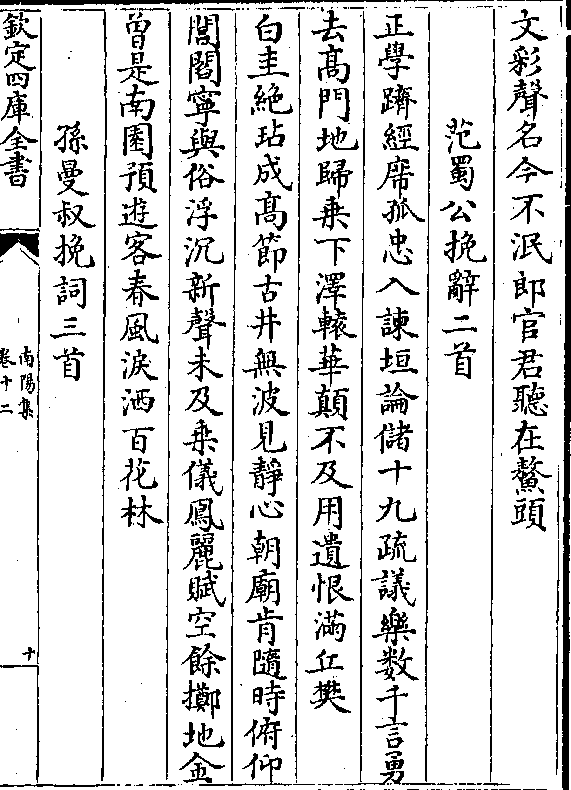 文彩聲名今不泯郎官君聽在鰲頭
范蜀公挽辭二首
正學躋經席孤忠入諫垣論儲十九疏議樂数千言勇
去髙門地歸乗下澤轅華顛不及用遺恨滿丘樊
白圭絶玷成髙節古井無波見靜心朝廟肯隨時俯仰
閭閻寧與俗浮沉新聲未及来儀鳳麗賦空餘擲地金
曽是南園預遊客春風淚洒百花林
孫曼叔挽詞三首
欽定四庫全書
南陽集
卷十二
十